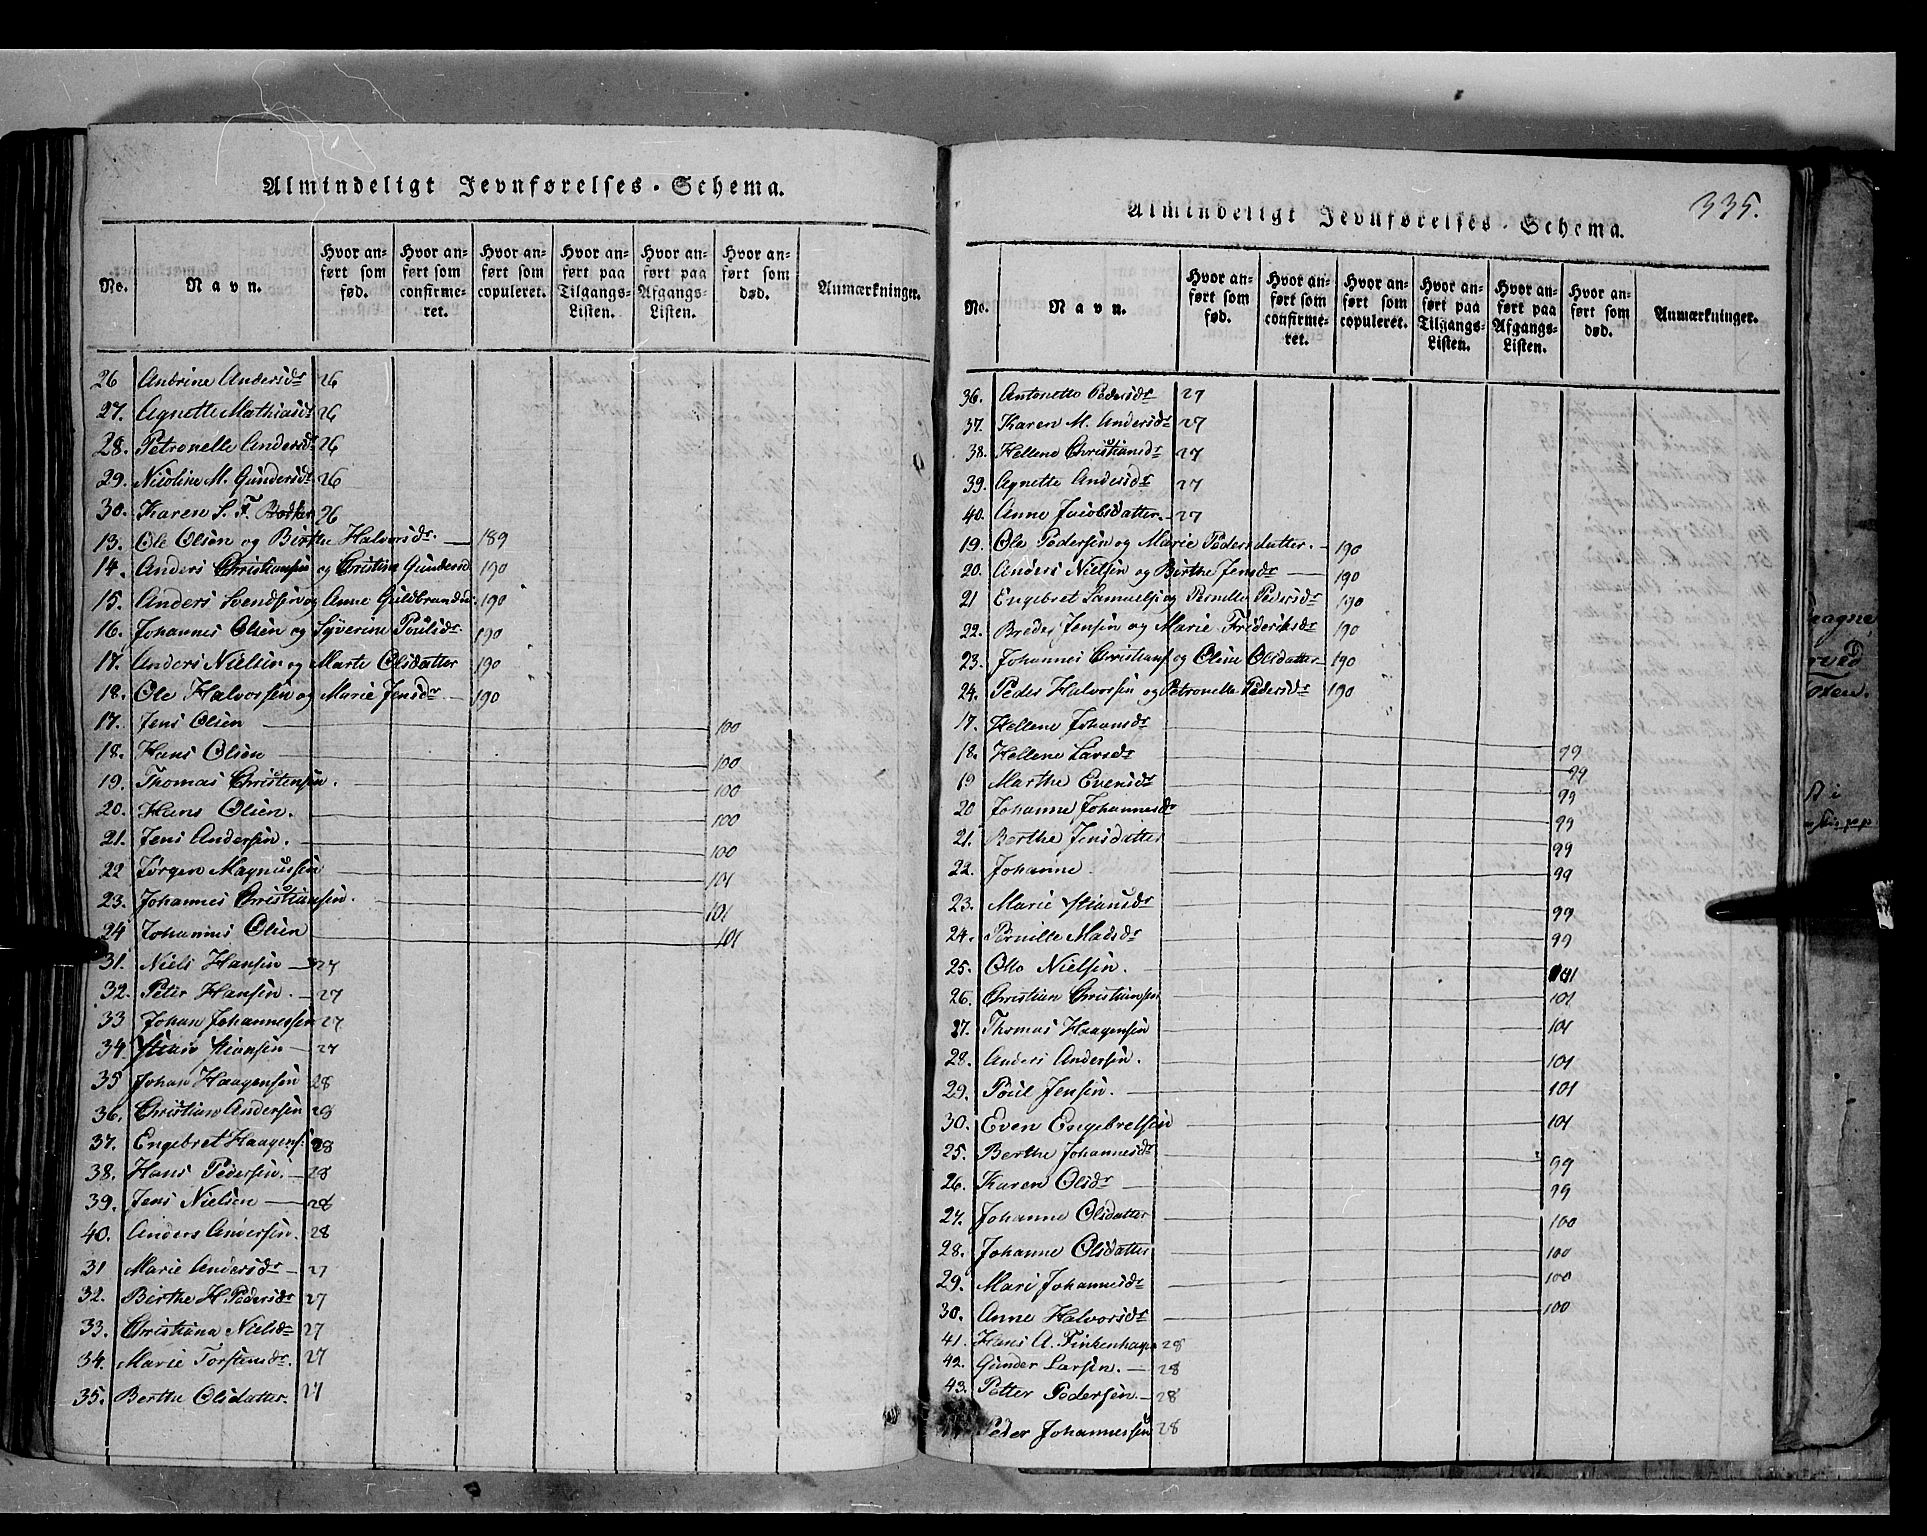 Almindeligt Jevnførelses-Schema.
No.
Navn.
Hvor anført som fød.
Hvor anført som confirmeret.
Hvor anført som copuleret.
Hvor anført paa Tilgangs-Listen.
Hvor anført paa Afgangs-Listen.
Hvor anført som død.
Anmærkninger.
26 Andrine Andersdr 26
27. Agnette Mathiasdr 26
28. Petronelle Andersdr 26
29. Nicoline M. Gundersdr 26
30. Karen S. F. 26
13. Ole Olsen og Birthe Halvorsdr. 189
14. Anders Christiansen og Christine Gundersd 190
15. Anders Svendsen og Anne Guldbrandsd. 190
16. Johannes Olsen og Syverine Poulsdr. 190
17. Anders Nielsen og Marte Olsdatter 190
18. Ole Halvorsen og Marie Jensdr 190
17. Jens Olsen 100
18. Hans Olsen 100
19. Thomas Christensen. 100
20. Hans Olsen. 100
21. Jens Andersen. 100
22 Jørgen Magnussen 101
23. Johannes Christiansen. 101
24 Johannes Olsen 101
31. Niels Hansen 27
32. Peter Hansen. 27
33 Johan Johannessen 27
34. Stian Stiansen 27
35 Johan Haagensen 28
36. Christian Andersen 28
37. Engebret Haagens. 28
38. Hans Pedersen. 28
39. Jens Nielsen 28
40. Anders Andersen. 28
31 Marie Andersdr 27
32. Birthe H. Pedersdr 27
33. Christiana Nielsdr 27
34. Marie Torstensdr. 27
35. Berthe Olsdatter. 27
335.
Almindeligt Jevnførelses-Schema.
No.
Navn.
Hvor anført som fød.
Hvor anført som confirmeret.
Hvor anført som copuleret.
Hvor anført paa Tilgangs-Listen.
Hvor anført paa Afgangs-Listen.
Hvor anført som død.
Anmærkninger.
36. Antonette Pedersdr 27
37. Karen M. Andersdr 27
38. Hellene Christiansdr 27
39. Agnette Andersdr 27
40. Anne Jacobsdatter. 27
19. Ole Pedersen og Marie Pedersdatter. 190
20. Anders Nielsen og Birthe Jensdr 190
21 Engebret Samuels. og Pernille Pedersdr 190
22. Breder Jensen og Marie Frideriksdr 190
23. Johannes Christians. og Oline Olsdatter 190
24. Peder Halvorsen og Petronelle Pedersdr 190
17. Hellene Johansdr 99
18. Hellene Larsdr 99
19 Marthe Evensdr 99
20 Johanne Johannesdr 99
21. Berthe Jensdatter 99
22. Johanne 99
23. Marie Stiansdr 99
24. Pernille Madsdr 99
25. Otto Nielsen. 101
26. Christian Christiansen 101
27. Thomas Haagensen 101
28. Anders Andersen. 101
29. Poul Jensen. 101
30. Even Engebretsen 101
25. Berthe Johannesdr 99
26. Karen Olsdr 99
27. Johanne Olsdatter 100
28. Johanne Olsdatter 100
29. Mari Johannesdr 100
30. Anne Halvorsdr 100
41. Hans A. Finkenhagen 28
42. Gunder Larsen. 28
43. Petter Pedersen. 28
Peder Johannessen 28